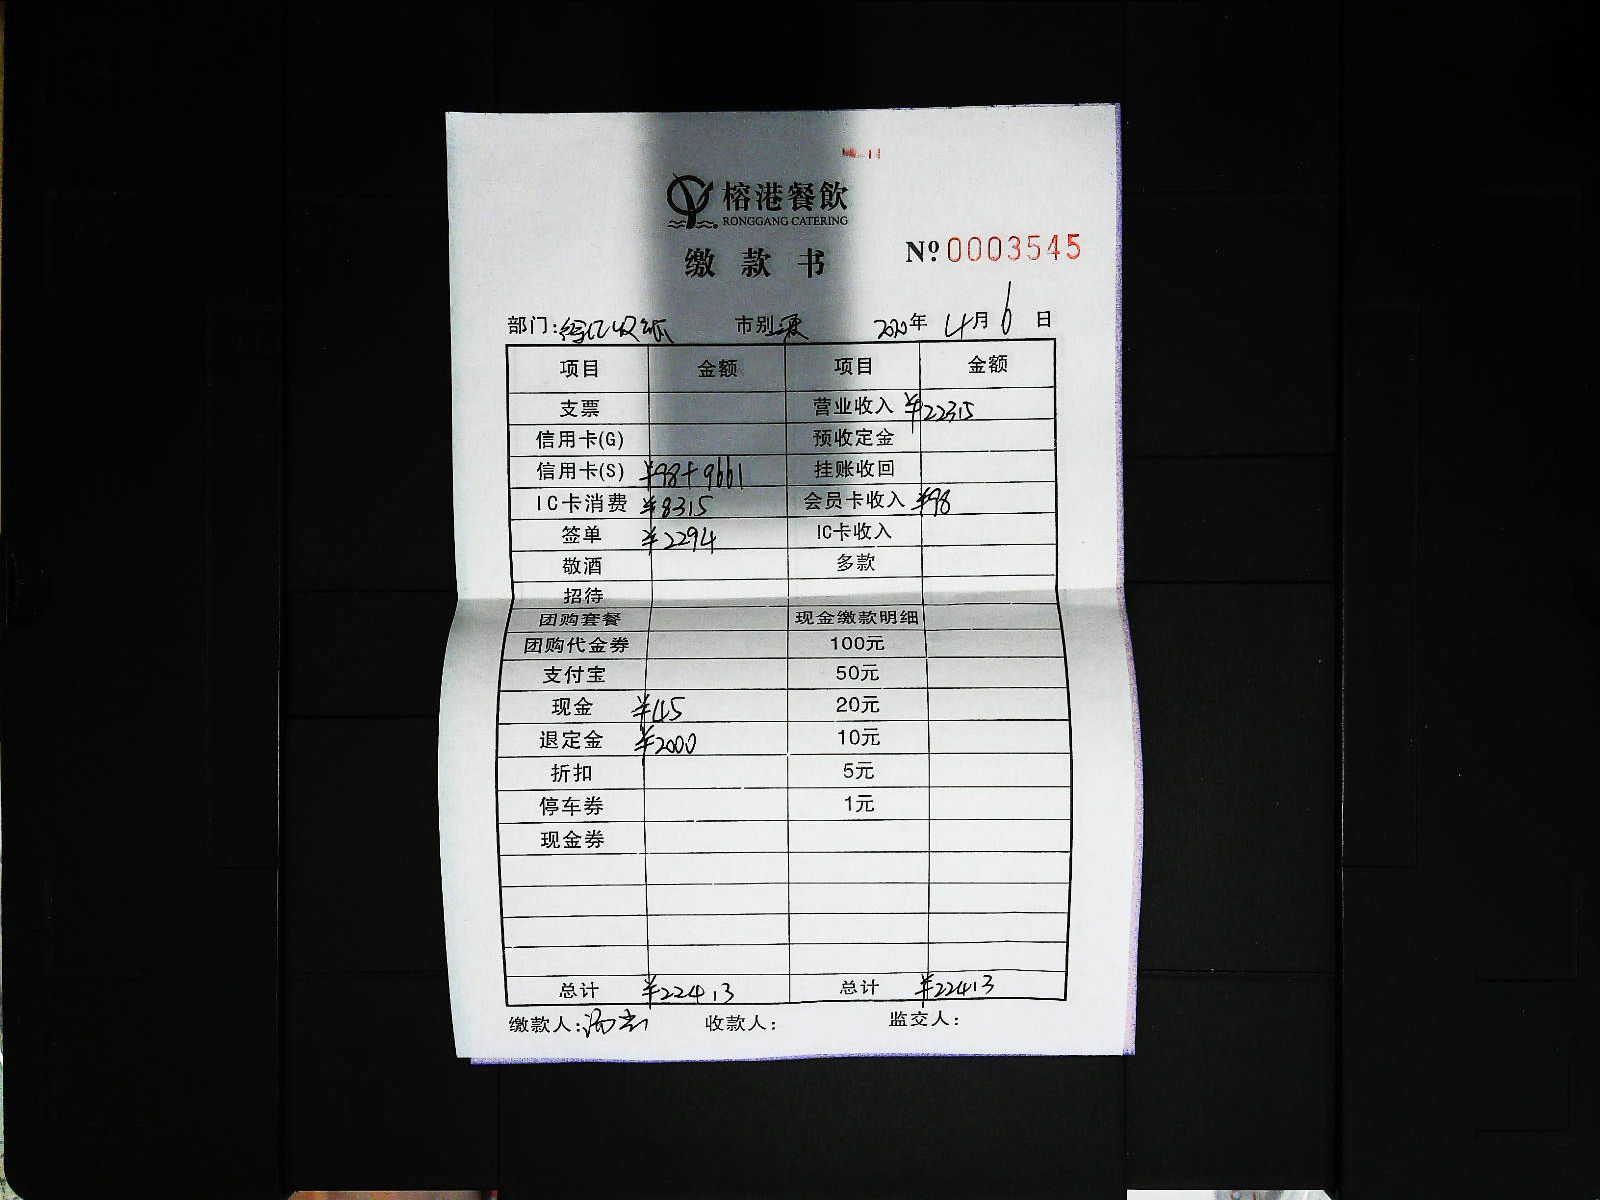 榕港餐飲
RONGGANG CATERING
缴款书
№ 0003545
部门: 市别: 夜 2020年 4月 6日
项目 金额 项目 金额
支票 营业收入 ¥22315
信用卡(G) 预收定金
信用卡(S) ¥98+9661 挂账收回
IC卡消费 ¥8315 会员卡收入 ¥98
签单 ¥2294 IC卡收入
敬酒 多款
招待
团购套餐 现金缴款明细
团购代金券 100元
支付宝 50元
现金 ¥45 20元
退定金 ¥2000 10元
折扣 5元
停车券 1元
现金券
总计 ¥22413 总计 ¥22413
缴款人: 收款人: 监交人: